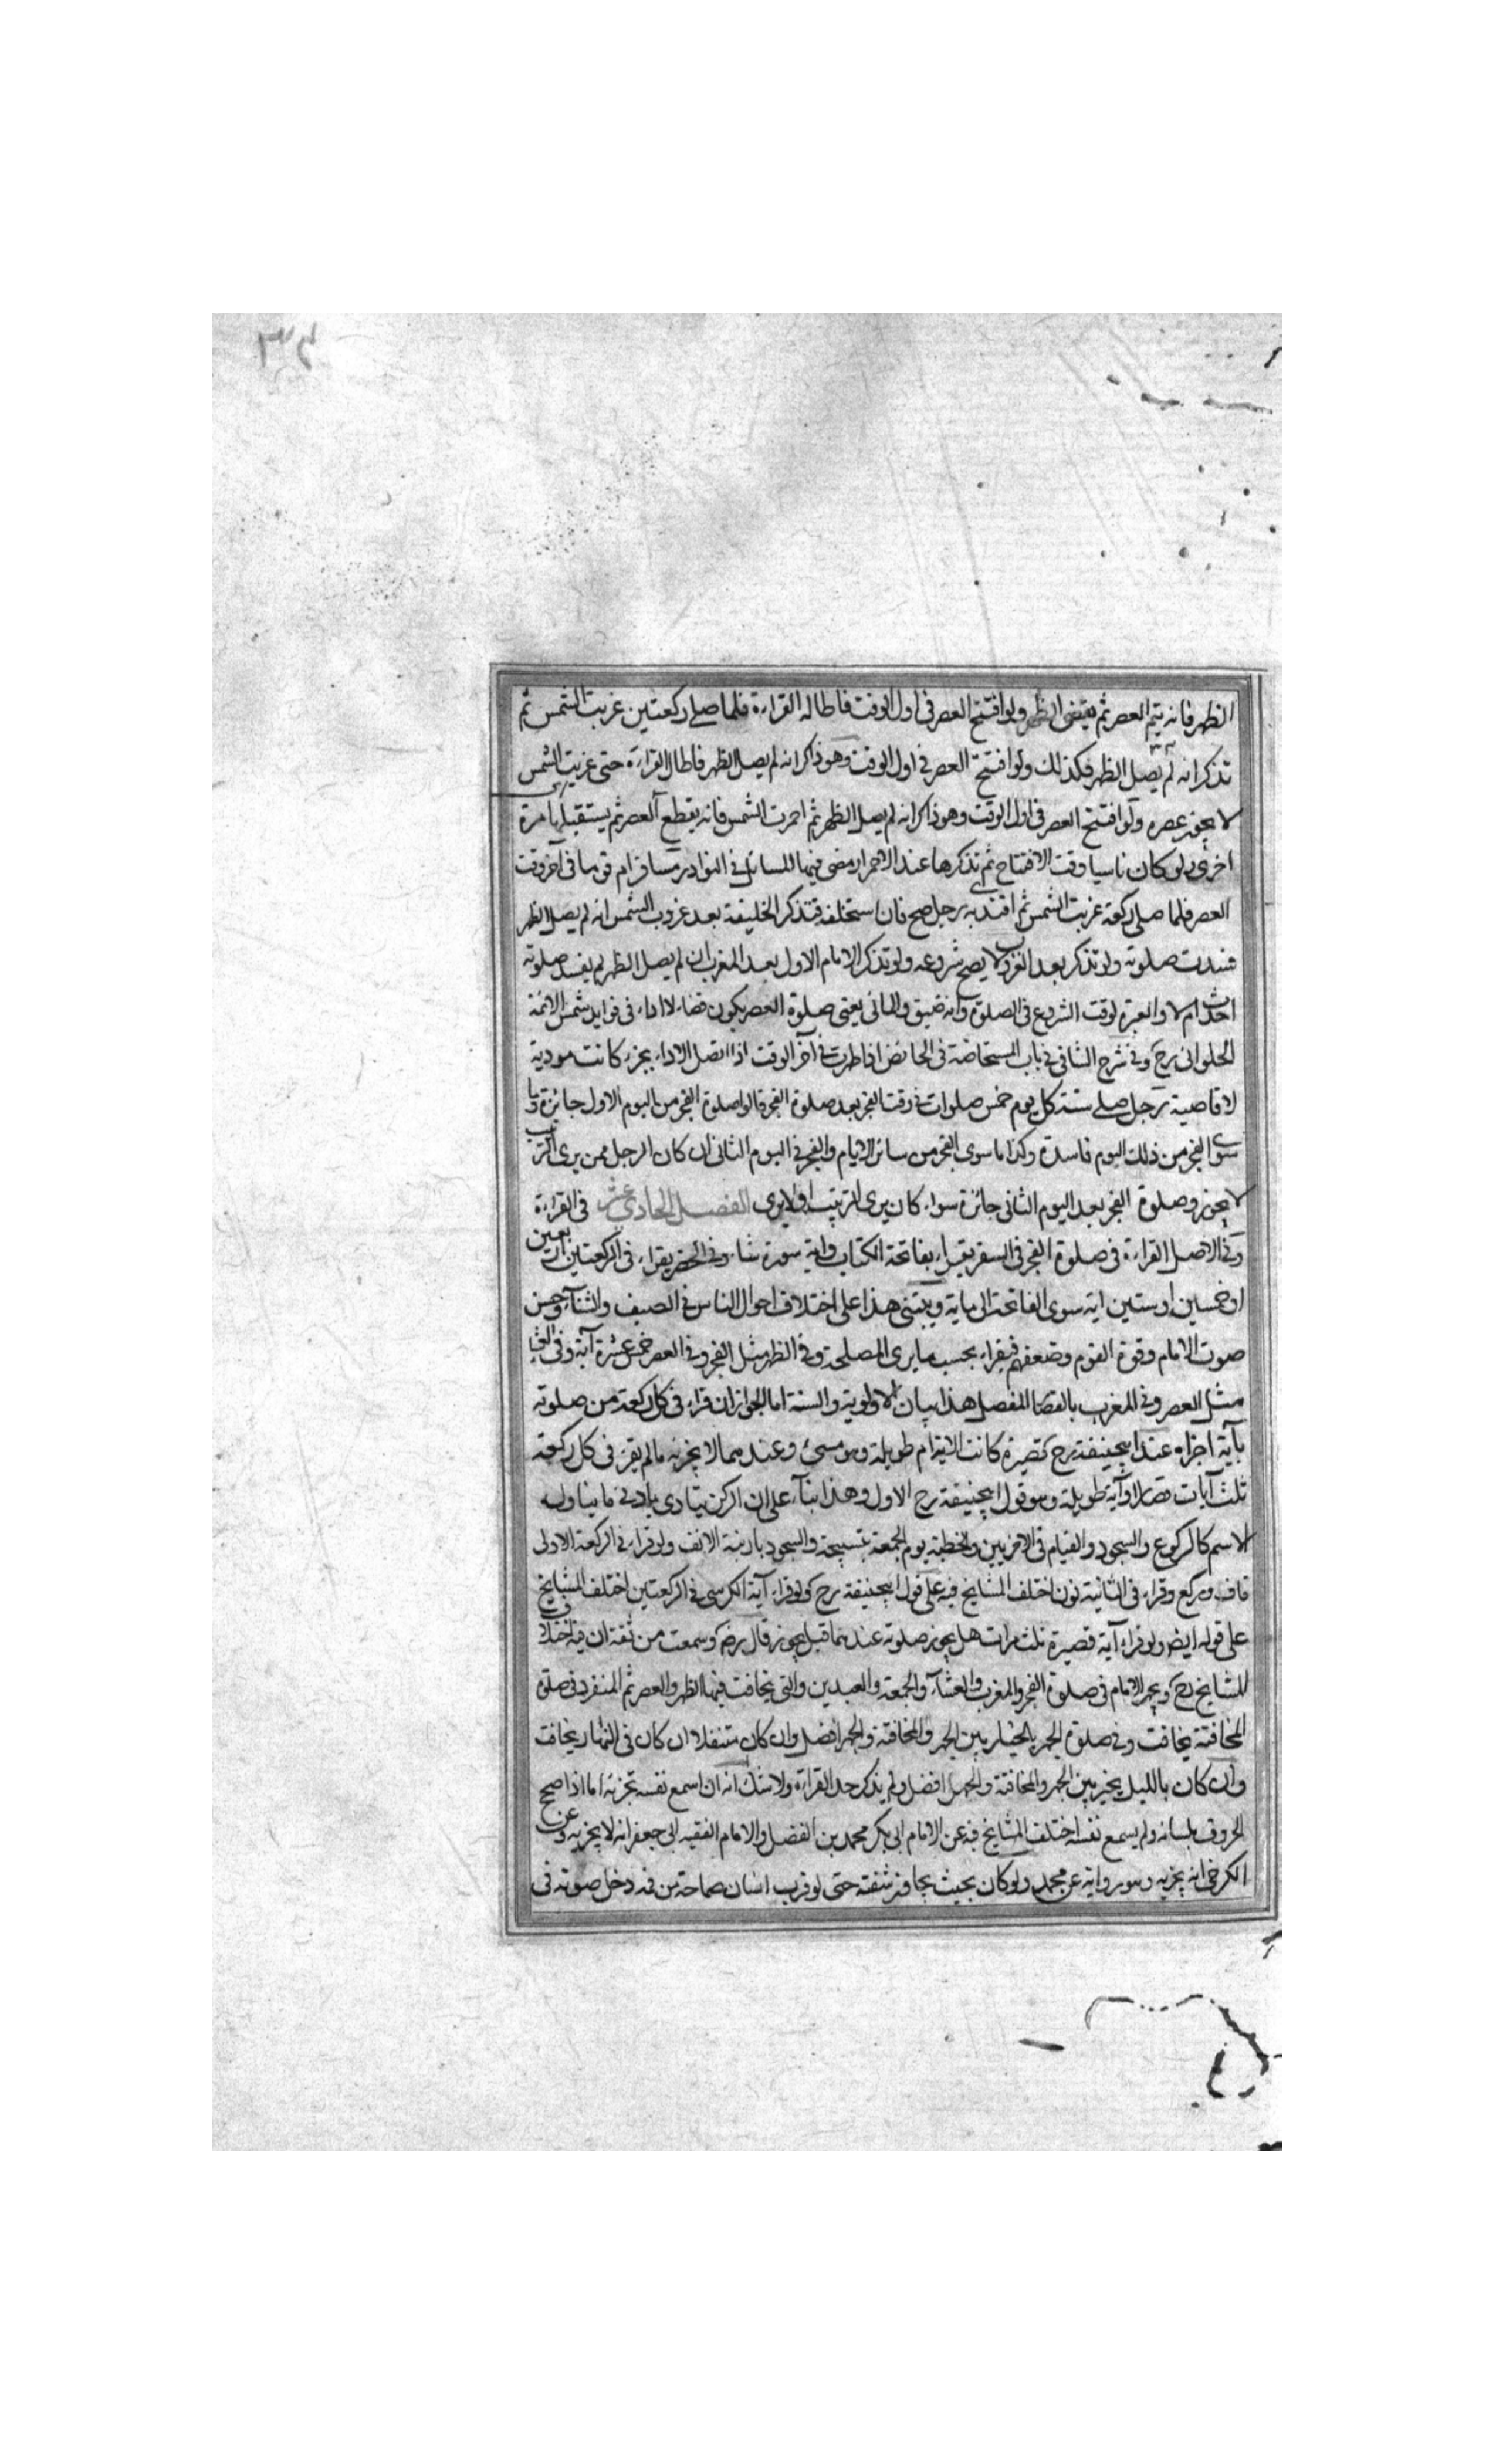 ٣٤
الظهر فانه يتم العصر ثم يقضى الظهر ولو افتتح العصر فى اول الوقت فاطاله القراءة فلما صلى ركعتين غربت الشمس ثم
تذكر انه لم يصل الظهر فكذلك ولو افتتح العصر فى اول الوقت وهو ذاكر انه لم يصل الظهر فاطال القراءة حتى غربت الشمس
لا يجوز عصره ولو افتتح العصر فى اول الوقت وهو ذاكر انه لم يصل الظهر ثم احمرت الشمس فانه يقطع العصر ثم يستقبلها مرة
اخرى ولو كان ناسيا وقت الافتتاح ثم تذكرها عند الاحمرار مضى فيها المسائل فى النوادر مسافر ام قوما فى آخر وقت
العصر فلما صلى ركعة غربت الشمس ثم اقتدى به رجل صح فان استخلفه فتذكر الخليفة بعد غروب الشمس انه لم يصل الظهر
فسدت صلوته ولو تذكر بعد الغروب لا يصح شروعه ولو تذكر الامام الاول بعد المغرب ان لم يصل الظهر لم يفسد صلوته
احدث ام لا والعبرة لوقت الشروع فى الصلوة وانه ضيق والمانى يعنى صلوة العصر يكون قضاء لا اداء فى فوايد شمس الائمة
الحلوانى رح وفى شرح الشافى فى باب المستحاضة فى الحائض اذا طهرت فى آخر الوقت اذا اتصل الاداء بجزء كانت مودية
لا قاضية رجل صلى سنة كل يوم خمس صلوات فى وقت الفجر بعد صلوة الفجر قالوا صلوة الفجر من اليوم الاول جائزة وما
سوى الفجر من ذلك اليوم فاسدة وكذا ما سوى الفجر من سائر الايام والفجر فى اليوم الثانى ان كان الرجل ممن يرى الترتيب
لا يجوز وصلوة الفجر بعد اليوم الثانى جائزة سواء كان يرى الترتيب او لا يرى الفصل الحادى عشر فى القراءة
وفى الاصل القراءة فى صلوة الفجر فى السفر يقراء بفاتحة الكتاب واية سورة شاء وفى الحضر يقراء فى الركعتين اربعين
او خمسين او ستين اية سوى الفاتحة الى ماية ويبتنى هذا على اختلاف احوال الناس فى الصيف والشتاء وحسن
صوت الامام وقوة القوم وضعفهم فيقراء بحسب ما يرى المصلحة وفى الظهر مثل الفجر وفى العصر خمس عشرة آية وفى العشاء
مثل العصر وفى المغرب بالقصار المفصل هذا بيان الاولوية والسنة اما الجواز ان قراء فى كل ركعة من صلوته
بآية اجزاه عند ابيحنيفة رح قصيرة كانت الاية ام طويلة وهو مسئ وعندهما لا يجزيه ما لم يقرء فى كل ركعة
ثلث آيات قصار او آية طويلة وهو قول ابيحنيفة رح الاول وهذا بناء على ان الركن يتادى بادنى ما يتناوله
الاسم كالركوع والسجود والقيام فى الاخريين والخطبة يوم الجمعة بتسبيحة والسجود بارنبة الانف ولو قراء فى الركعة الاولى
قاف وركع وقراء فى الثانية نون اختلف المشايخ فيه على قول ابيحنيفة رح ولو قراء آية الكرسى فى الركعتين اختلف المشايخ
على قوله ايضا ولو قراء آية قصيرة ثلث مرات هل يجوز صلوته عندهما قيل يجوز قال رضه وسمعت من ثقة ان فيه اختلاف
المشايخ رح ويجهر الامام فى صلوة الفجر والمغرب والعشاء والجمعة والعيدين والتى يخافت فيها الظهر والعصر ثم المنفرد فى صلوة
المخافتة يخافت وفى صلوة الجهر بالخيار بين الجهر والمخافتة والجهر افضل وان كان متنفلا ان كان فى النهار يخافت
وان كان بالليل يخير بين الجهر والمخافتة والجهر افضل ولم يذكر حد القراءة ولا شك انه ان اسمع نفسه تجزيه اما اذا صحح
الحروف بلسانه ولم يسمع نفسه اختلف المشايخ فيه عن الامام ابى بكر محمد بن الفضل والامام الفقيه ابى جعفر انه لا يجزيه وعن
الكرخى انه يجزيه وهو رواية عن محمد ولو كان بحيث يجاوز شفته حتى لو قرب انسان صماخه من فمه دخل صوته فى